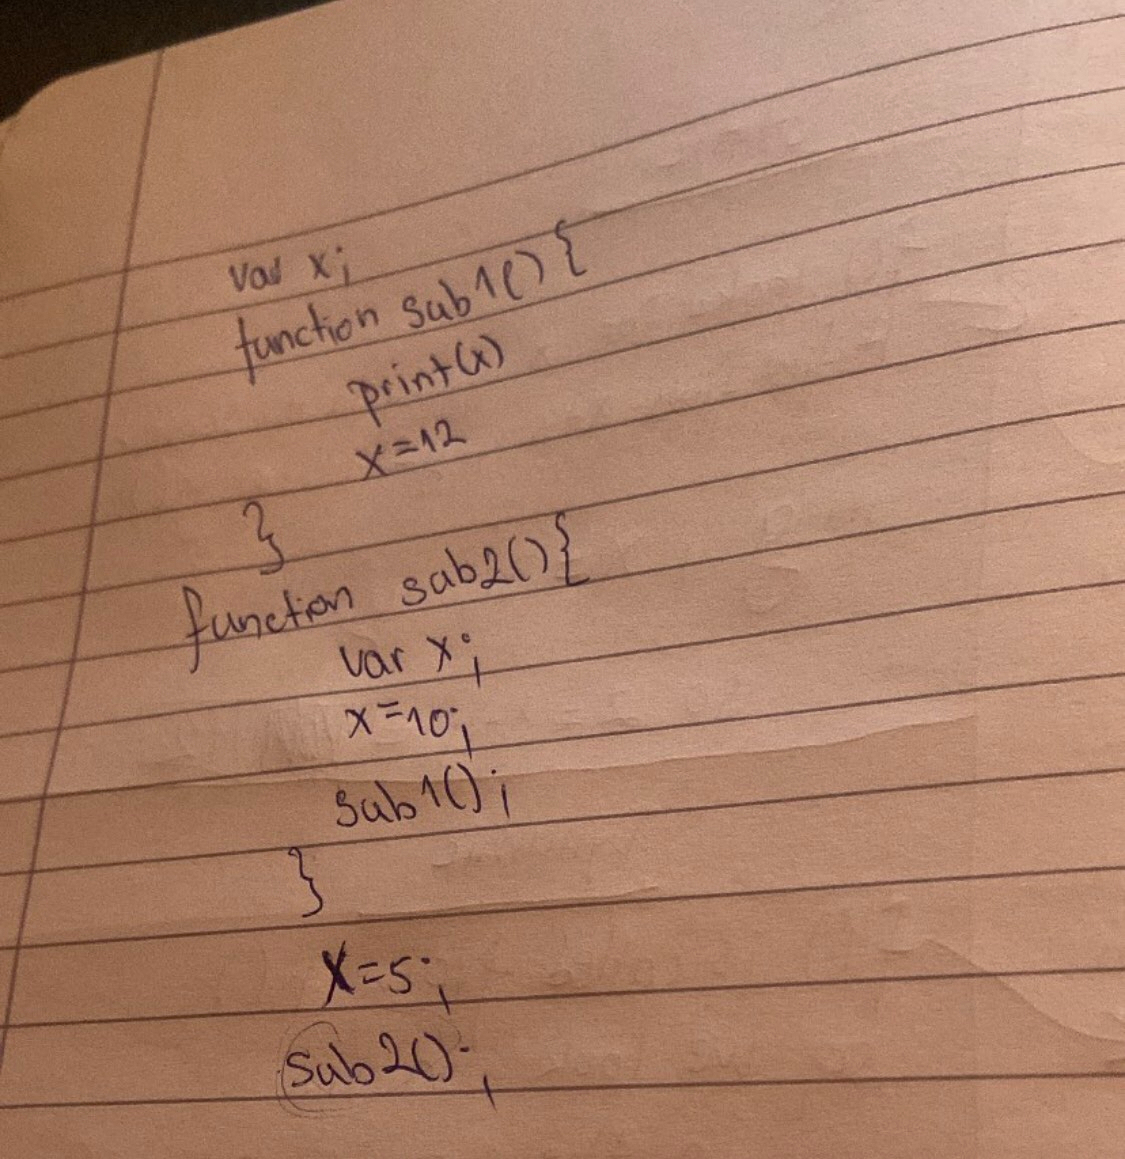 var x;
function sub1(){
print(x)
x=12
}
function sub2(){
var x;
x=10;
sub1();
}
x=5;
sub2();